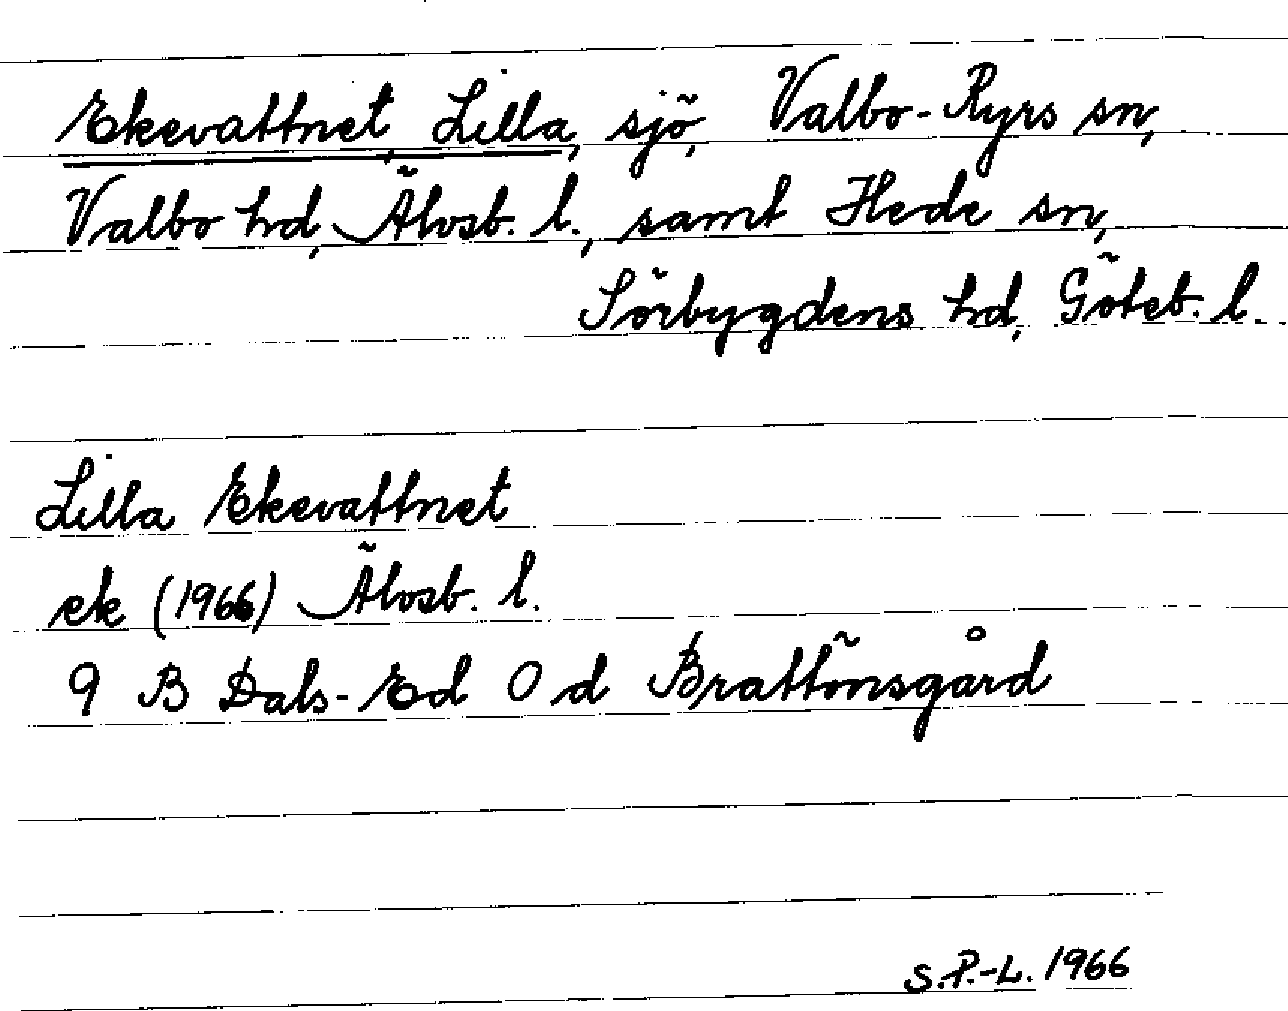 Ekevattnet, Lilla, sjö, Valbo-Ryrs sn,
Valbo hd, Älvsb. l., samt Hede sn,
Sörbygdens hd, Göteb. l.
Lilla Ekevattnet
ek (1966) Älvsb. l.
9 B Dals-Ed 0 d Brattönsgård
S.P.-L. 1966